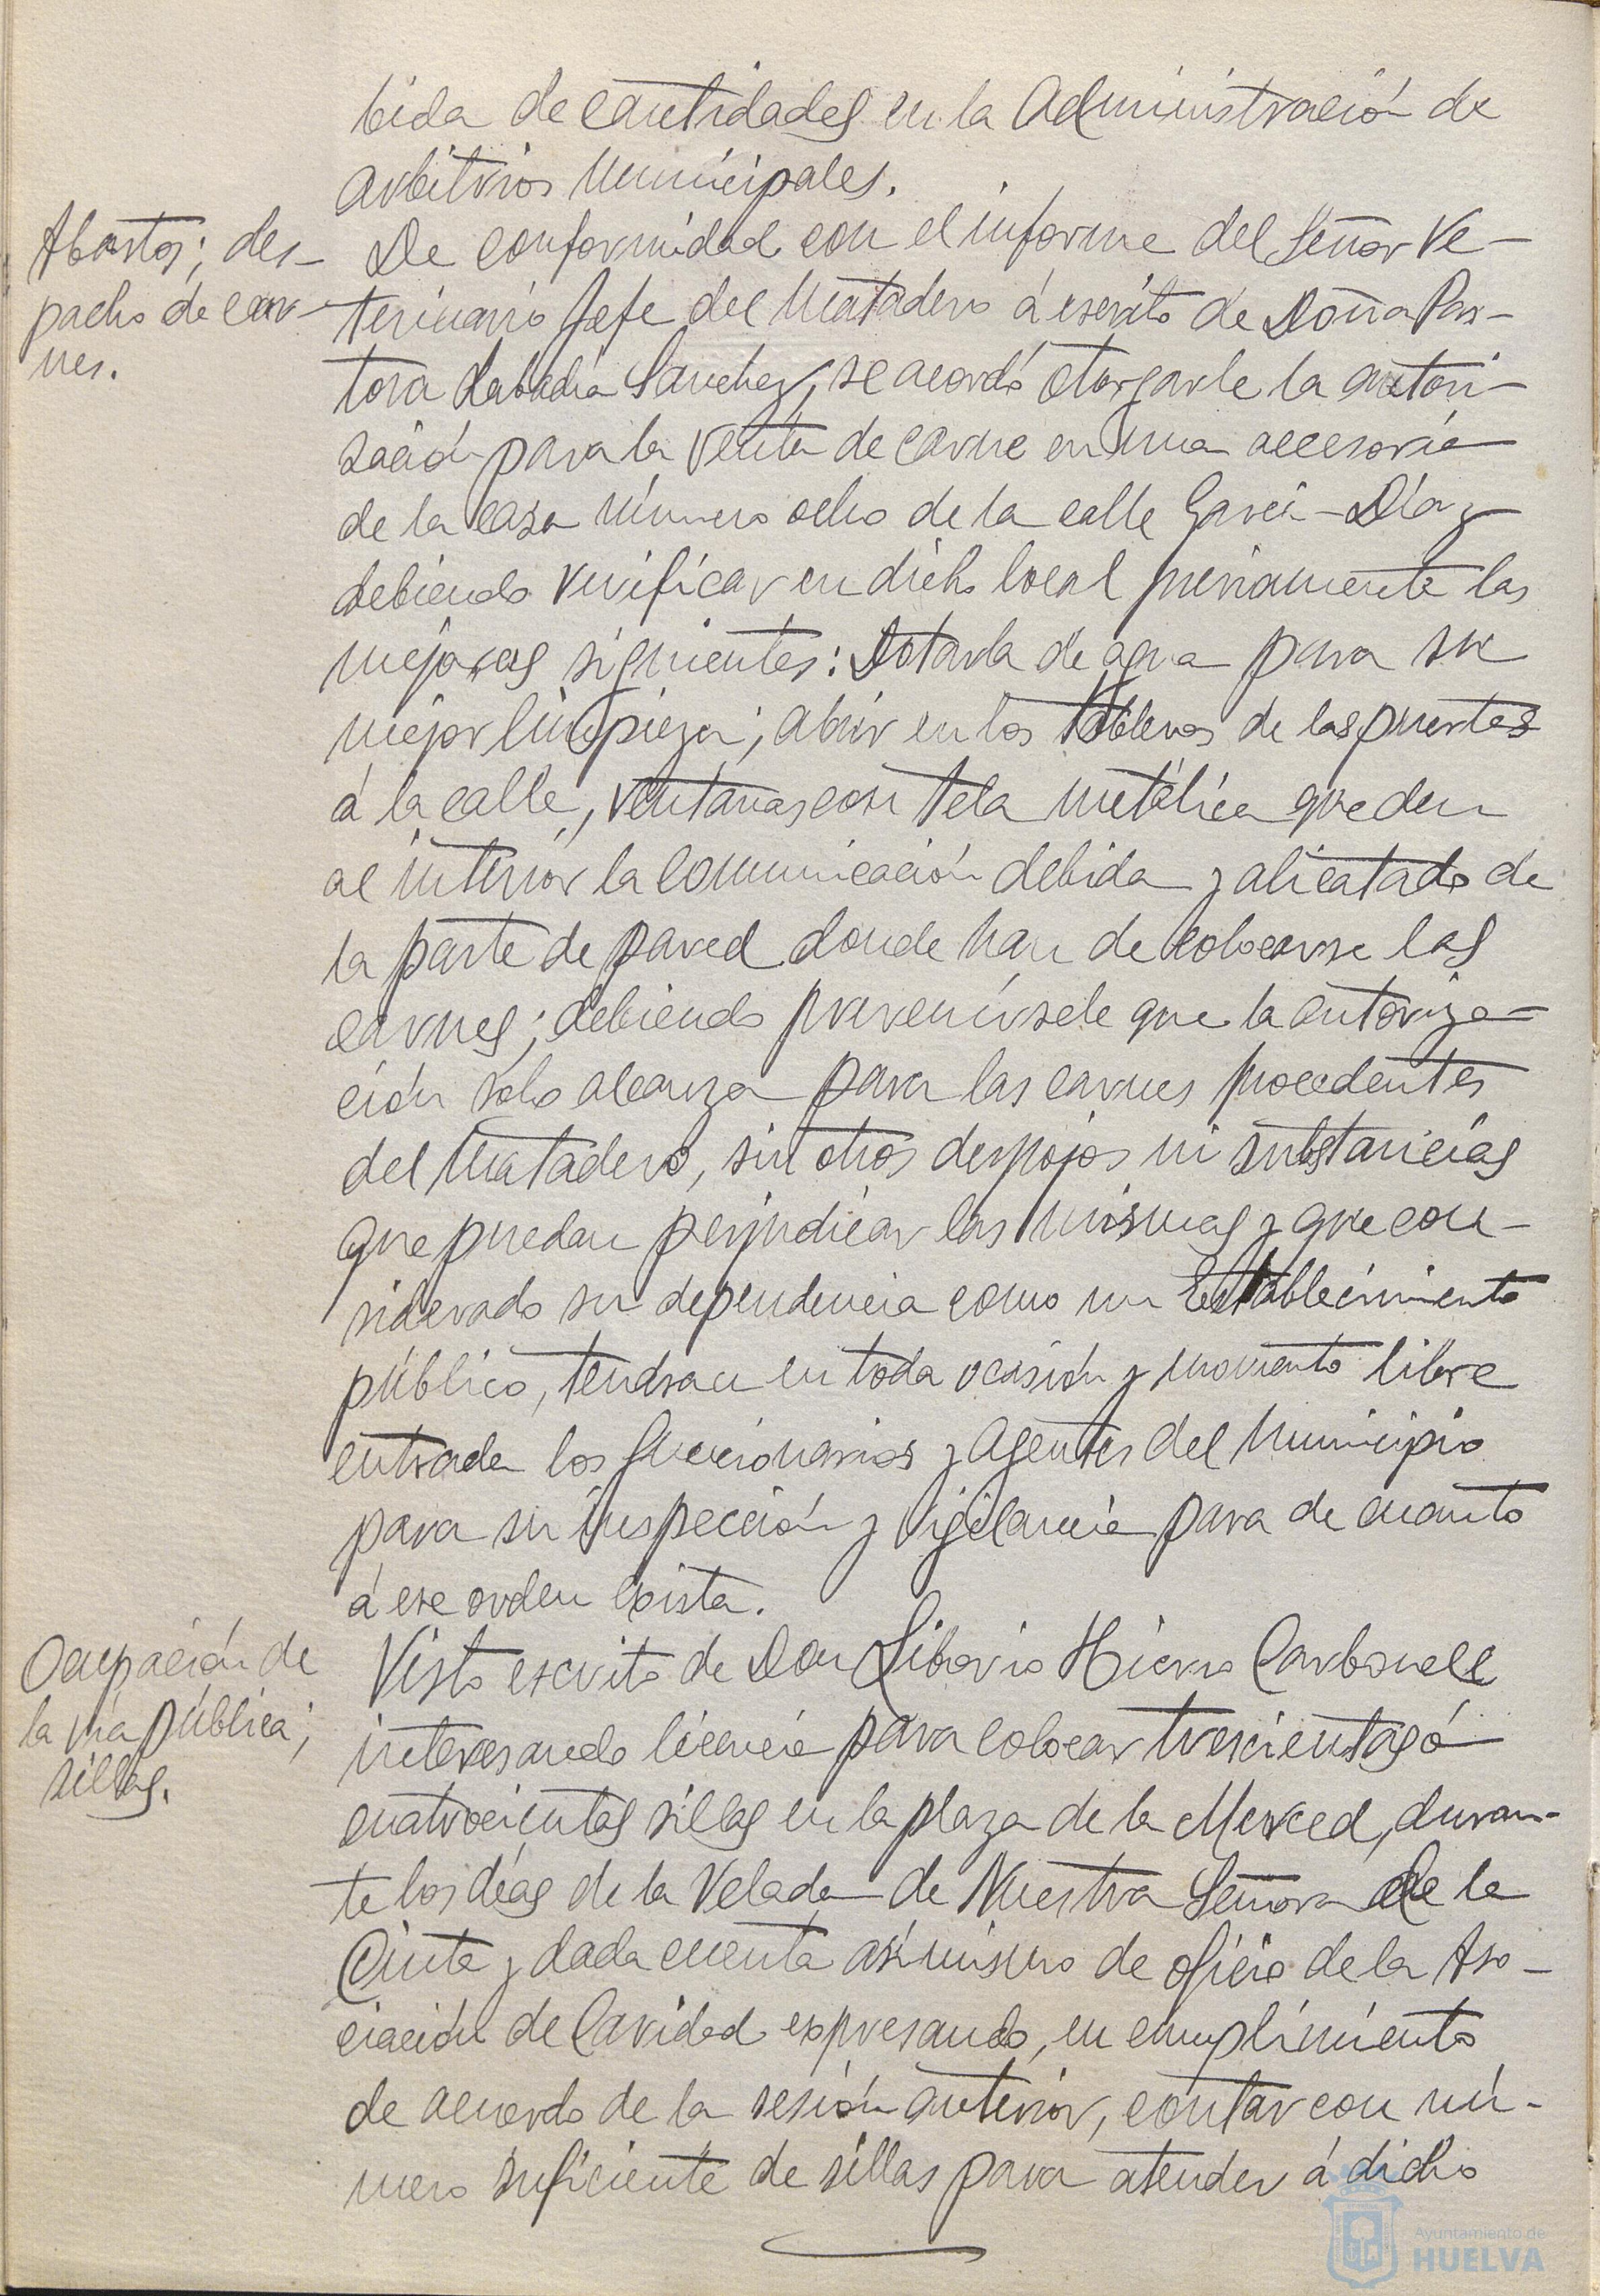 bida de cantidades en la Administración de
arbitrios Municipales.
Abastos; des-
pacho de car-
nes.
De conformidad con el informe del Señor Ve-
terinario Jefe del Matadero á escrito de Doña Pas-
tora Labadía Sanchez, se acordó otorgarle la autori-
zación para la venta de carne en una accesoria
de la casa número ocho de la calle Garci-Díaz
debiendo verificar en dicho local previamente las
mejoras siguientes: Dotarla de agua para su
mejor limpieza; abrir en los tableros de las puertas
á la calle, ventanas con tela metálica que den
al interior la comunicación debida y alicatado de
la parte de pared donde han de colocarse las
carnes; debiendo prevenírsele que la autoriza-
ción solo alcanza para las carnes procedentes
del Matadero, sin otros despojos ni substancias
que puedan perjudicar las mismas y que con-
siderado su dependencia como un Establecimiento
público, tendran en toda ocasión y momento libre
entrada los funcionarios y agentes del Municipio
para su inspección y vigilancia para de cuanto
á ese orden exista.
Ocupación de
la vía pública;
sillas.
Visto escrito de Don Liborio Hierro Carbonell
interesando licencia para colocar trescientas ó
cuatrocientas sillas en la plaza de la Merced, duran-
te los días de la Velada de Nuestra Señora de la
Cinta y dada cuenta asímismo de oficio de la Aso-
ciación de Caridad expresando, en cumplimiento
de acuerdo de la sesión anterior, contar con nú-
mero suficiente de sillas para atender á dicho
Ayuntamiento de
HUELVA